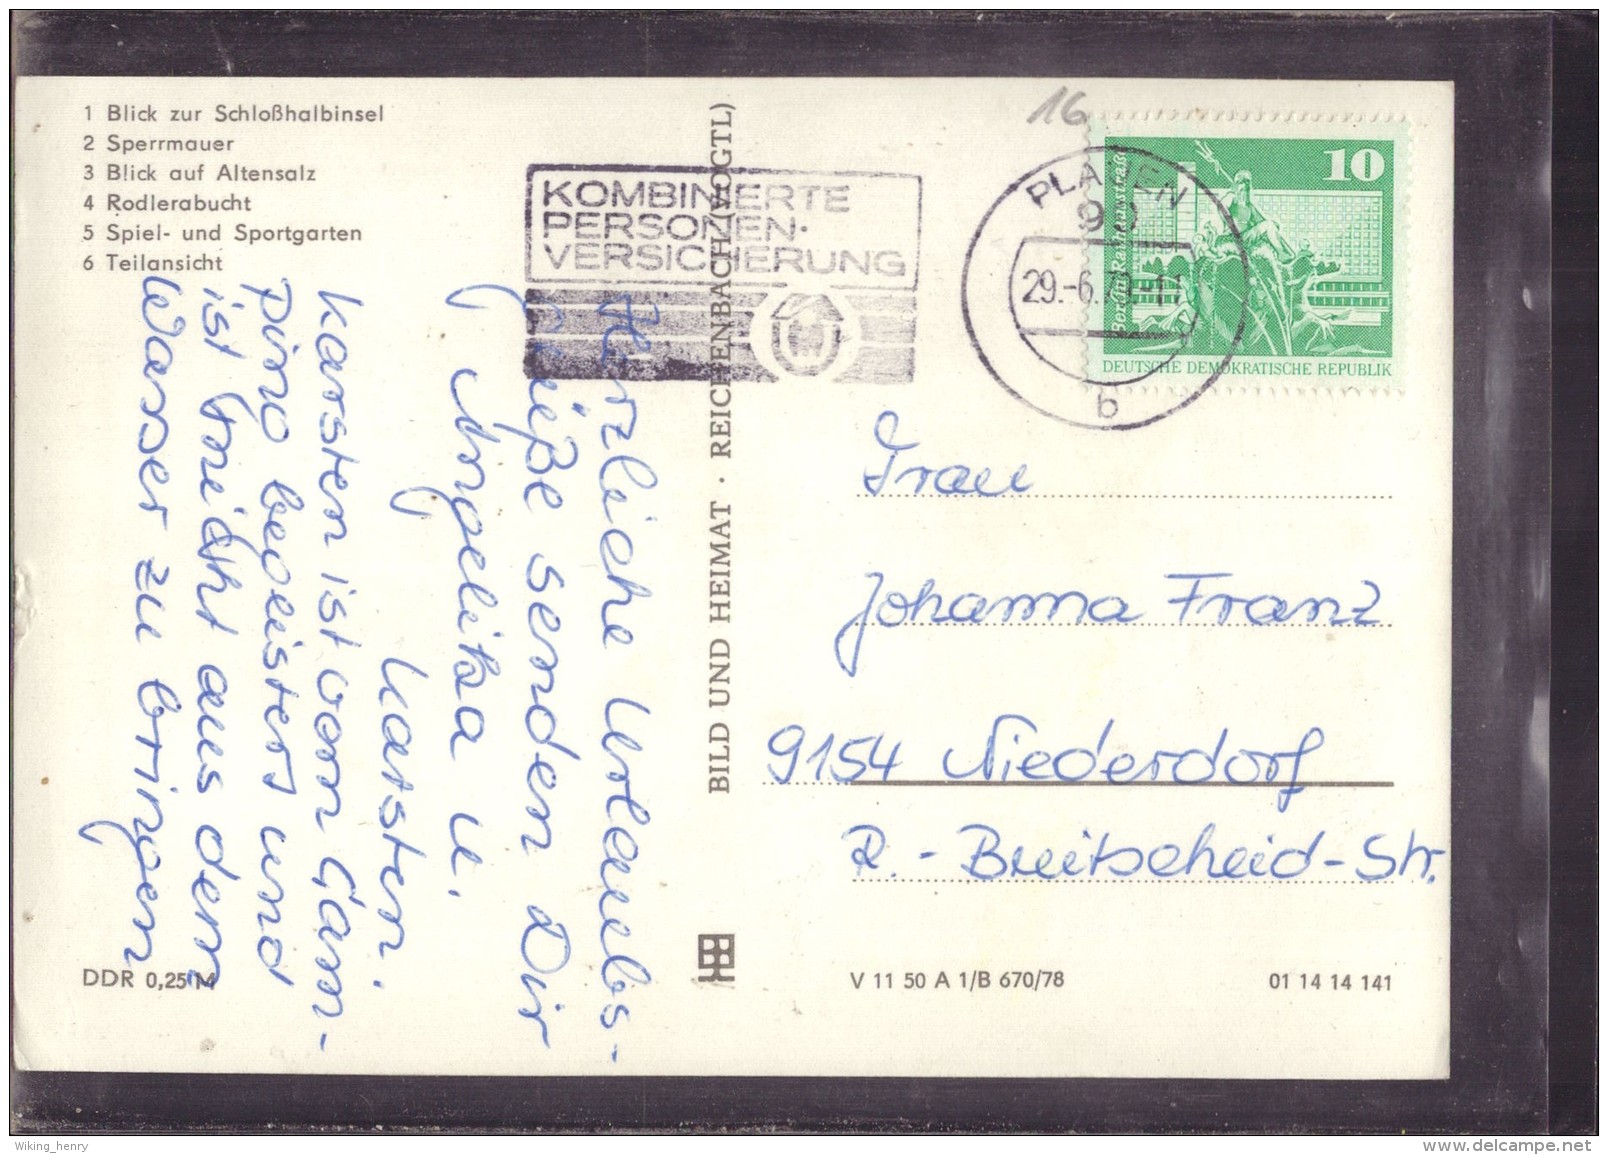 1 Blick zur Schloßhalbinsel
2 Sperrmauer
3 Blick auf Altensalz
4 Rodlerabucht
5 Spiel- und Sportgarten
6 Teilansicht
Herzliche Urlaubs-
grüße senden Dir
Angelika u.
Karsten.
Karsten ist vom Cam-
ping begeistert und
ist nicht aus dem
Wasser zu bringen
DDR 0,25 M
BILD UND HEIMAT · REICHENBACH (VOGTL)
KOMBINIERTE
PERSONEN-
VERSICHERUNG
16
PLAUEN
29.-6.
b
10
Berlin Rathausstraße
DEUTSCHE DEMOKRATISCHE REPUBLIK
Frau
Johanna Franz
9154 Niederdorf
R.-Breitscheid-Str.
V 11 50 A 1/B 670/78
01 14 14 141
Wiking_henry
www.delcampe.net